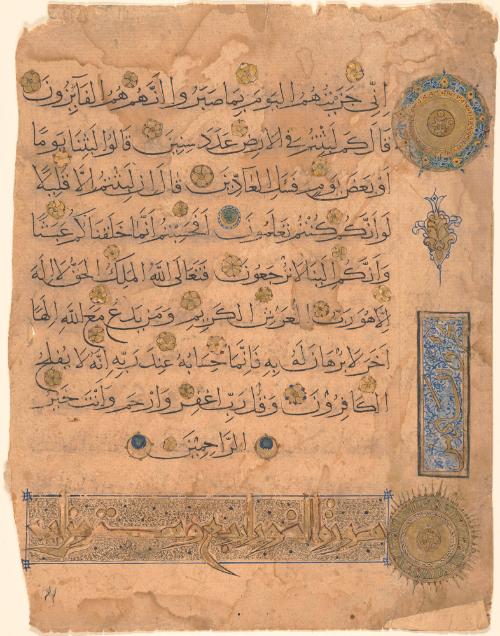 اني جزيتهم اليوم بما صبروا انهم هم الفايزون
قال كم لبثتم في الارض عدد سنين قالوا لبثنا يوما
او بعض يوم فسئل العادين قال ان لبثتم الا قليلا
لو انكم كنتم تعلمون افحسبتم انما خلقناكم عبثا
وانكم الينا لا ترجعون فتعالى الله الملك الحق لا اله
الا هو رب العرش الكريم ومن يدع مع الله الها
اخر لا برهان له به فانما حسابه عند ربه انه لا يفلح
الكافرون وقل رب اغفر وارحم وانت خير
الراحمين
سورة النور اربع وستون